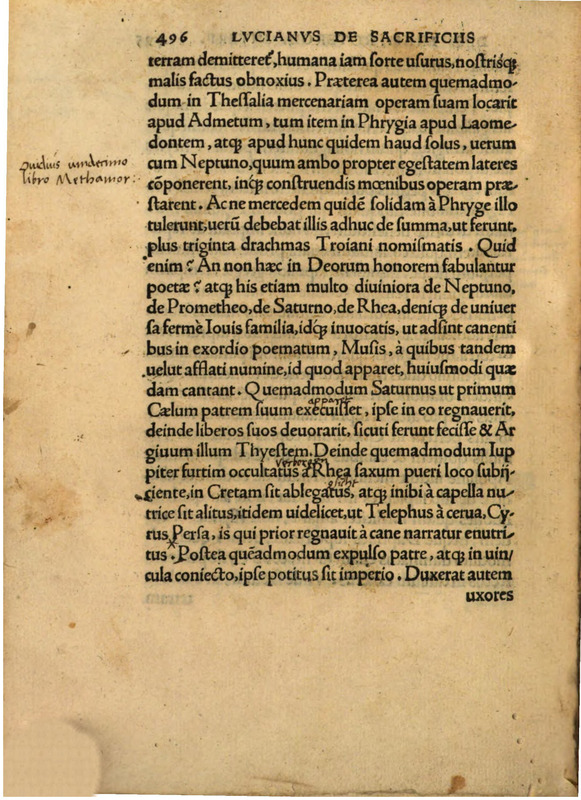 496 LVCIANVS DE SACRIFICIIS
terram demitteret᷒, humana iam sorte usurus, nostrisq́ꝫ
malis factus obnoxius. Præterea autem quemadmo-
dum in Thessalia mercenariam operam suam locarit
apud Admetum, tum item in Phrygia apud Laome-
dontem, atqꝫ apud hunc quidem haud solus, uerum
cum Neptuno, quum ambo propter egestatem lateres
cōponerent, inq́ꝫ construendis mœnibus operam præ-
starent. Ac ne mercedem quidē solidam à Phryge illo
tulerunt, uerū debebat illis adhuc de summa, ut ferunt,
plus triginta drachmas Troiani nomismatis. Quid
enim? An non hæc in Deorum honorem fabulantur
poetæ? atqꝫ his etiam multo diuiniora de Neptuno,
de Prometheo, de Saturno, de Rhea, deniqꝫ de uniuer
sa fermè Iouis familia, idq́ꝫ inuocatis, ut adsint canenti
bus in exordio poematum, Musis, à quibus tandem
uelut afflati numine, id quod apparet, huiusmodi quæ
dam cantant. Quemadmodum Saturnus ut primum
Cælum patrem suum execuisset, ipse in eo regnauerit,
deinde liberos suos deuorarit, sicuti ferunt fecisse & Ar
giuum illum Thyestem. Deinde quemadmodum Iup
piter furtim occultatus à Rhea saxum pueri loco subij-
ciente, in Cretam sit ablegatus, atqꝫ inibi à capella nu-
trice sit alitus, itidem uidelicet, ut Telephus à cerua, Cy-
rus Persa, is qui prior regnauit à cane narratur enutri-
tus. Postea quēadmodum expulso patre, atqꝫ in uin/
cula coniecto, ipse potitus sit imperio. Duxerat autem
uxores
libro Methamor: